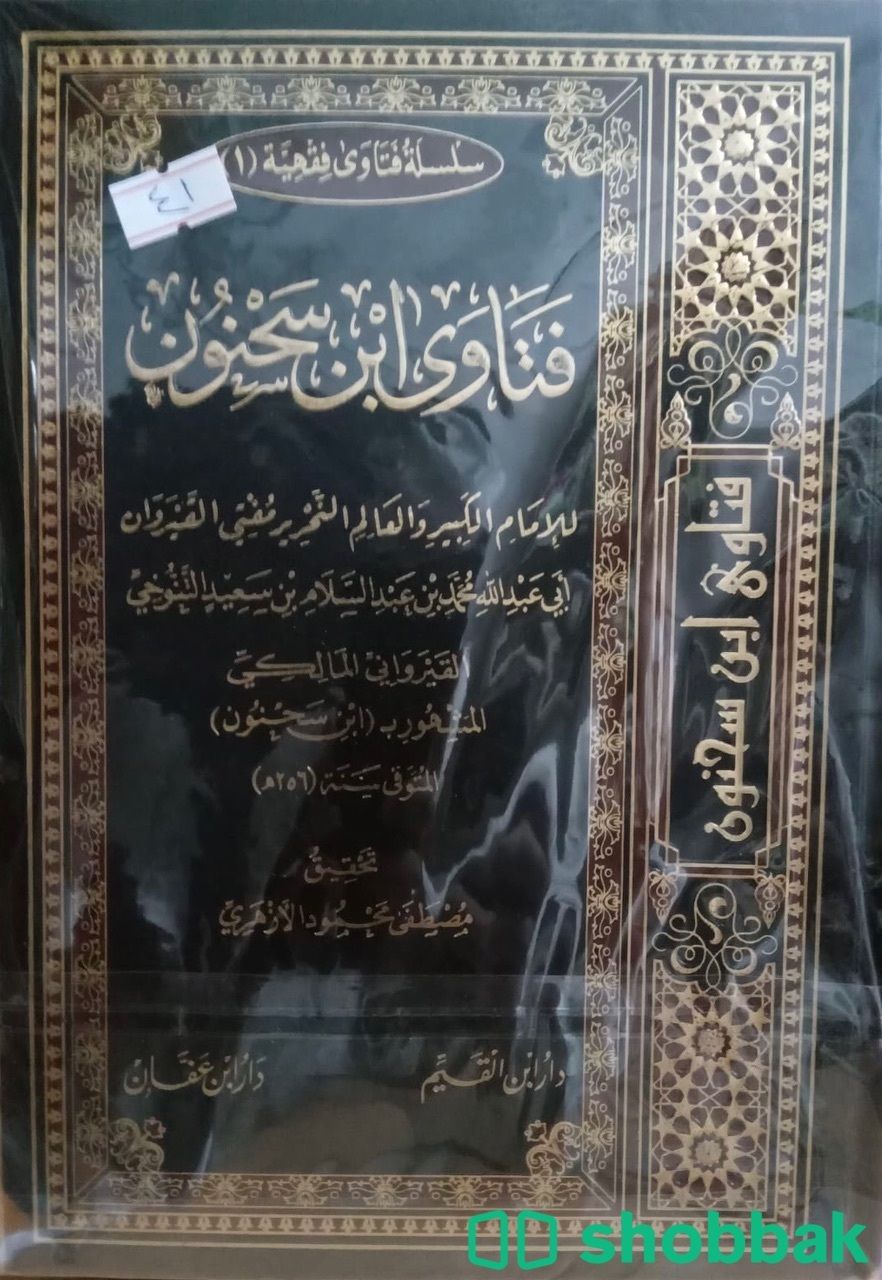 سلسلة فتاوى فقهية (١)
فَتَاوَى ابْن سَحْنُون
للإمَامِ الكَبِيرِ وَالعَالِمِ النِّحْرِيرِ مُفْتِي القَيْرَوَان
أَبِي عَبْدِ اللَّهِ مُحَمَّدِ بْنِ عَبْدِ السَّلَامِ بْنِ سَعِيدِ التَّنُوخِيِّ
القَيْرَوَانِيِّ المَالِكِيِّ
المَشْهُورِ بـ (ابْنِ سَحْنُون)
المُتَوَفَّى سَنَة (٢٥٦هـ)
تَحْقِيقُ
مُصْطَفَى مَحْمُود الأَزْهَرِيّ
دَار ابْن القَيِّم
دَار ابْن عَفَّان
فتاوى ابن سحنون
shobbak